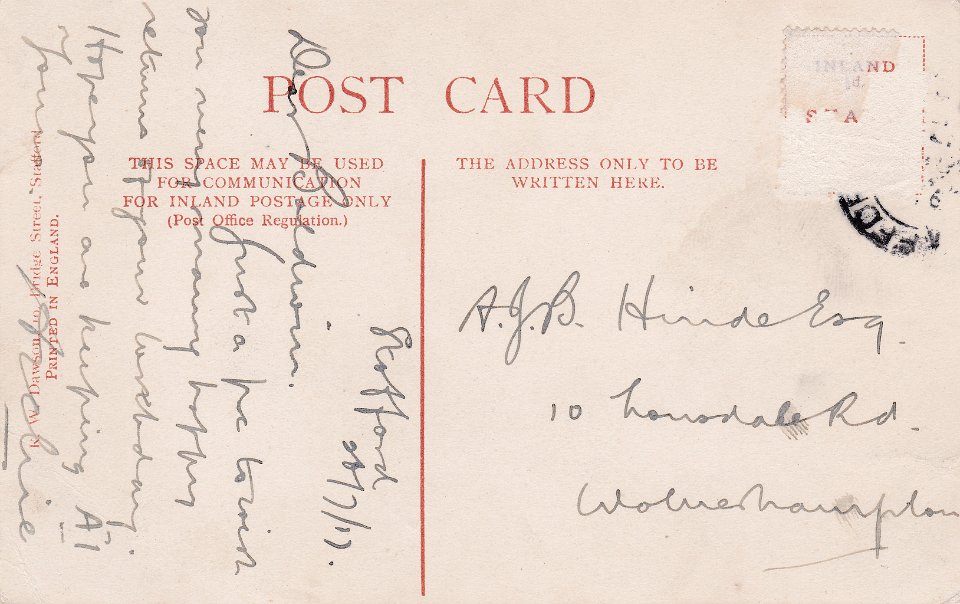 POST CARD
THIS SPACE MAY BE USED
FOR COMMUNICATION
FOR INLAND POSTAGE ONLY
(Post Office Regulation.)
THE ADDRESS ONLY TO BE
WRITTEN HERE.
INLAND
½d.
STA
OFFICE
A.J.B. Hinde Esq.
10 Lonsdale Rd.
Wolverhampton
Stafford
28/7/17.
Dear Baldwin.
Just a p.c. to wish
you very many happy
returns of your birthday.
Hope you are keeping A1
Yours
R. W. Dawson, 10, Bridge Street, Stafford
PRINTED IN ENGLAND.